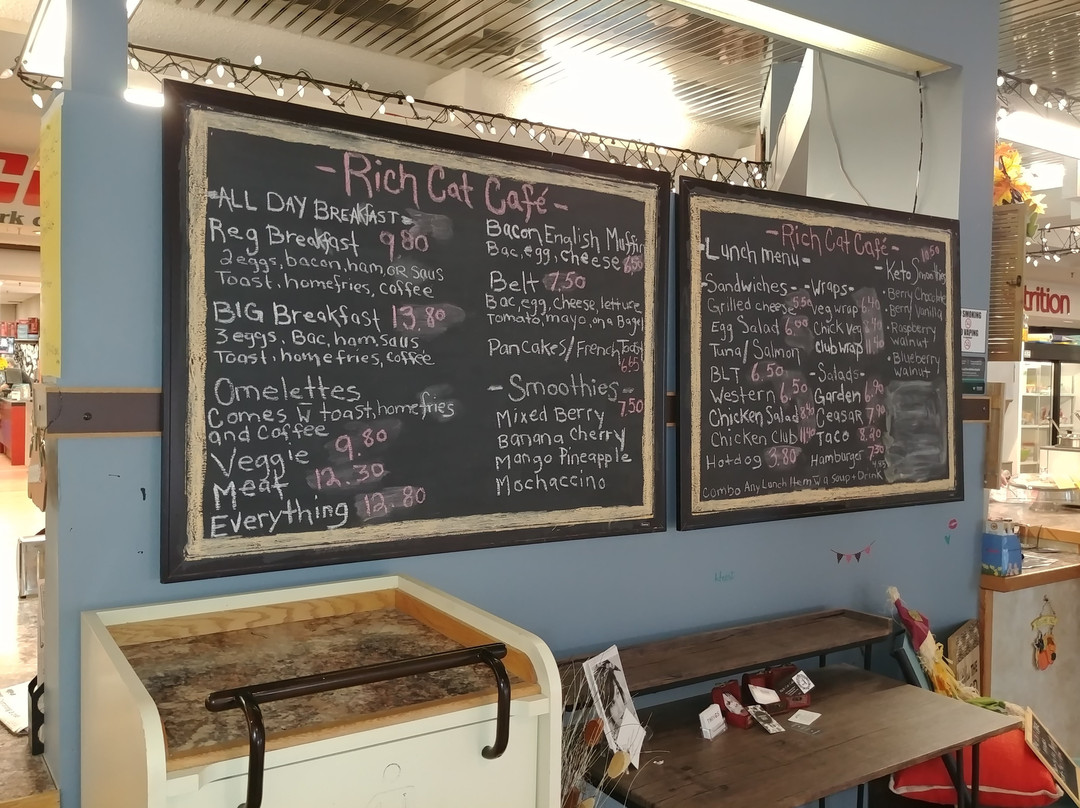 - Rich Cat Café -
-ALL DAY BreakFAST-
Reg Breakfast 9.80
2 eggs, bacon, ham, OR saus
Toast, homefries, coffee
BIG Breakfast 13.80
3 eggs, Bac, ham, saus
Toast, homefries, coffee
Omelettes
Comes w toast, homefries
and Coffee
Veggie 9.80
Meat 12.30
Everything 12.80
Bacon English Muffin
Bac, egg, cheese 6.50
Belt 7.50
Bac, egg, cheese, lettuce
Tomato, mayo, on a Bagel
Pancakes/French Toast
6.65
- Smoothies -
7.50
Mixed Berry
Banana Cherry
Mango Pineapple
Mochaccino
- Rich Cat Café -
Lunch menu -
-Sandwiches-
Grilled cheese 5.50
Egg Salad 6.00
Tuna/Salmon
BLT 6.50
Western 6.50
Chicken Salad
Chicken Club
Hotdog 3.80
-Wraps-
Veg wrap
Chick Veg
club wrap
-Salads-
Garden 6.90
Ceasar
Taco 8.20
Hamburger 7.50
Combo Any Lunch Item w a soup + Drink
10.50
-Keto Smoothies
• Berry Chocolate
• Berry Vanilla
• Raspberry
walnut
• Blueberry
walnut
trition